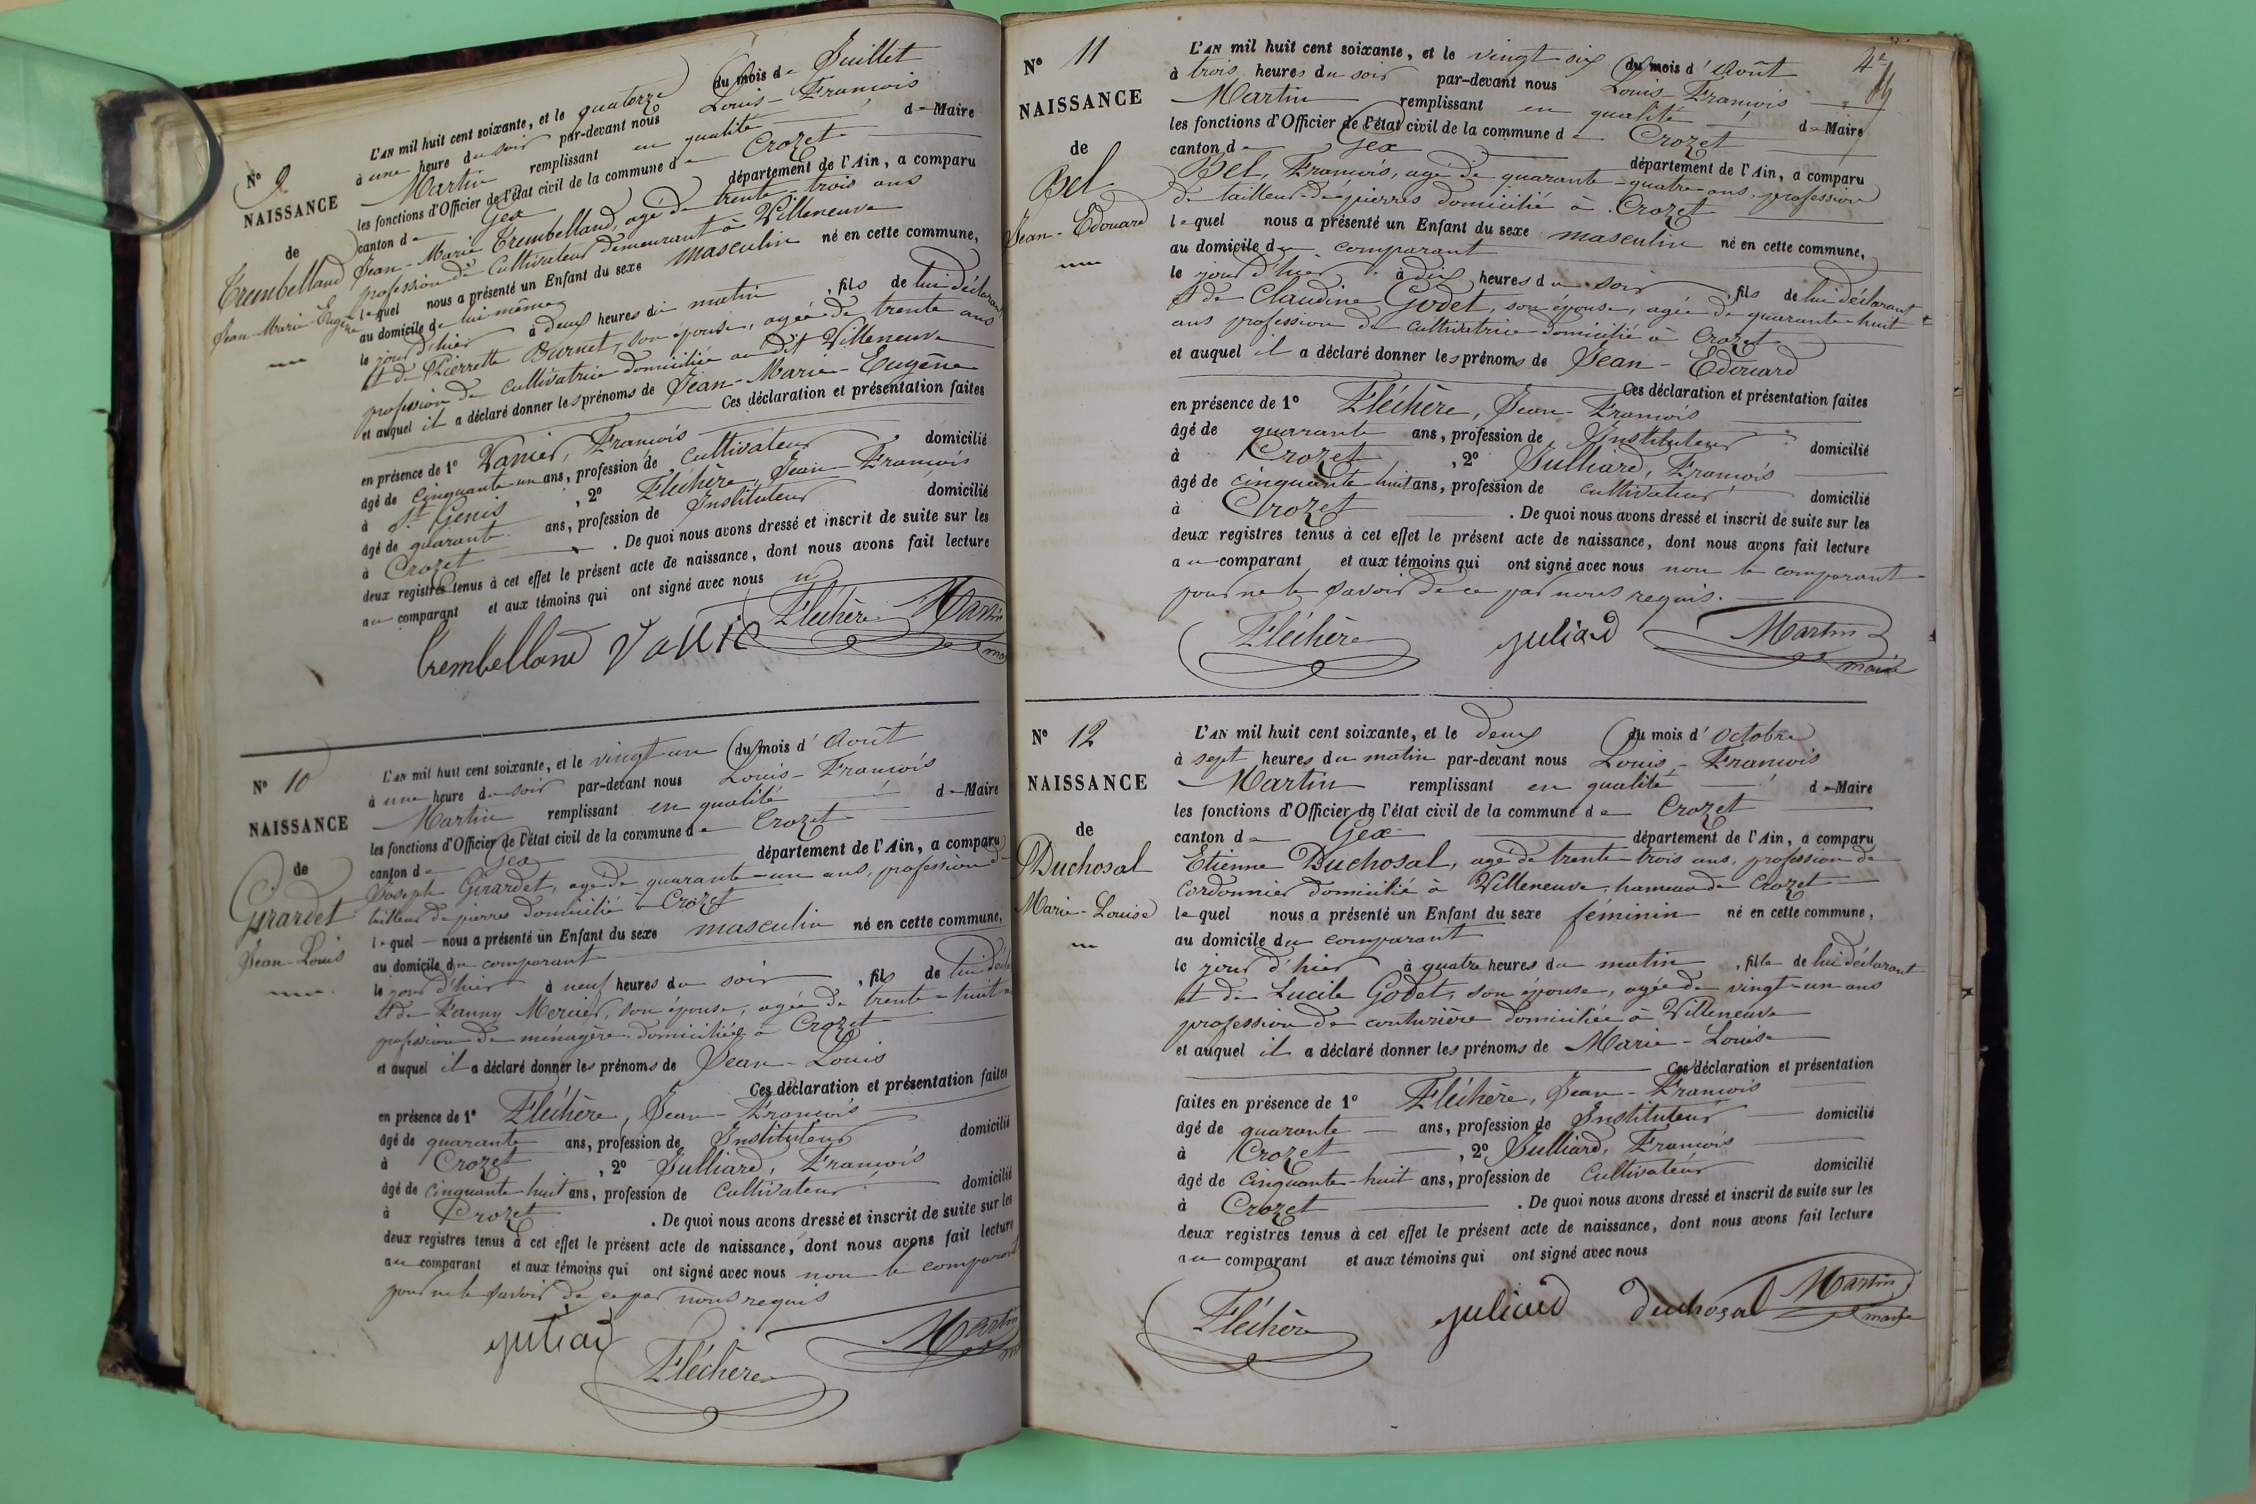 N° 9
NAISSANCE
de
Trembelland
Jean-Marie-Eugène
L'AN mil huit cent soixante, et le quatorze du mois de Juillet
à une heure du soir par-devant nous Louis-François
Martin remplissant en qualité de Maire
les fonctions d'Officier de l'état civil de la commune de Crozet
canton de Gex département de l'Ain, a comparu
Jean-Marie Trembelland, agé de trente-trois ans
profession de Cultivateur demeurant à Villeneuve
lequel nous a présenté un Enfant du sexe masculin né en cette commune,
au domicile de lui même
le jour d'hier à deux heures du matin, fils de lui déclarant
et de Pierrette Burnet, son épouse, agée de trente ans
profession de cultivatrice domiciliée au dit Villeneuve
et auquel il a déclaré donner les prénoms de Jean-Marie-Eugène
Ces déclaration et présentation faites
en présence de 1° Vanier, François
âgé de cinquante-un ans, profession de cultivateur domicilié
à St Genis, 2° Fléchère, Jean-François
âgé de quarante ans, profession de Instituteur domicilié
à Crozet. De quoi nous avons dressé et inscrit de suite sur les
deux registres tenus à cet effet le présent acte de naissance, dont nous avons fait lecture
au comparant et aux témoins qui ont signé avec nous
Trembelland Fléchère Martin
N° 10
NAISSANCE
de
Girardet
Jean-Louis
L'AN mil huit cent soixante, et le vingt-un du mois d'Août
à une heure du soir par-devant nous Louis-François
Martin remplissant en qualité de Maire
les fonctions d'Officier de l'état civil de la commune de Crozet
canton de Gex département de l'Ain, a comparu
Joseph Girardet, agé de quarante-un ans, profession de
tailleur de pierres domicilié à Crozet
lequel nous a présenté un Enfant du sexe masculin né en cette commune,
au domicile du comparant
le jour d'hier à neuf heures du soir, fils de lui décl
et de Fanny Mercier, son épouse, agée de trente-huit
profession de ménagère domiciliée à Crozet
et auquel il a déclaré donner les prénoms de Jean-Louis
Ces déclaration et présentation faites
en présence de 1° Fléchère, Jean-François
âgé de quarante ans, profession de Instituteur domicilié
à Crozet, 2° Julliard, François
âgé de cinquante-huit ans, profession de Cultivateur domicilié
à Crozet. De quoi nous avons dressé et inscrit de suite sur les
deux registres tenus à cet effet le présent acte de naissance, dont nous avons fait lecture
au comparant et aux témoins qui ont signé avec nous non le comparant
pour ne le savoir de ce par nous requis
juliard Fléchère Martin
N° 11
NAISSANCE
de
Bel
Jean-Edouard
L'AN mil huit cent soixante, et le vingt six du mois d'Août
à trois heures du soir par-devant nous Louis-François
Martin remplissant en qualité de Maire
les fonctions d'Officier de l'état civil de la commune de Crozet
canton de Gex département de l'Ain, a comparu
Bel, François, agé de quarante-quatre ans, profession
de tailleur de pierres domicilié à Crozet
lequel nous a présenté un Enfant du sexe masculin né en cette commune,
au domicile du comparant
le jour d'hier à dix heures du soir, fils de lui déclarant
& de Claudine Godet, son épouse, agée de quarante-huit
ans profession de cultivatrice domicilié à Crozet
et auquel il a déclaré donner les prénoms de Jean-Edouard
Ces déclaration et présentation faites
en présence de 1° Fléchère, Jean-François
âgé de quarante ans, profession de Instituteur domicilié
à Crozet, 2° Julliard, François
âgé de cinquante-huit ans, profession de cultivateur domicilié
à Crozet. De quoi nous avons dressé et inscrit de suite sur les
deux registres tenus à cet effet le présent acte de naissance, dont nous avons fait lecture
au comparant et aux témoins qui ont signé avec nous non le comparant
pour ne le savoir de ce par nous requis.
Fléchère juliard Martin
maire
N° 12
NAISSANCE
de
Duchosal
Marie-Louise
L'AN mil huit cent soixante, et le deux du mois d'Octobre
à sept heures du matin par-devant nous Louis-François
Martin remplissant en qualité de Maire
les fonctions d'Officier de l'état civil de la commune de Crozet
canton de Gex département de l'Ain, a comparu
Etienne Duchosal, agé de trente-trois ans, profession de
Cordonnier domicilié à Villeneuve, hameau de Crozet
lequel nous a présenté un Enfant du sexe féminin né en cette commune,
au domicile du comparant
le jour d'hier à quatre heures du matin, fille de lui déclarant
et de Lucile Godet, son épouse, agée de vingt-un ans
profession de couturière domiciliée à Villeneuve
et auquel il a déclaré donner les prénoms de Marie-Louise
Ces déclaration et présentation
faites en présence de 1° Fléchère, Jean-François
âgé de quarante ans, profession de Instituteur domicilié
à Crozet, 2° Julliard, François
âgé de Cinquante-huit ans, profession de Cultivateur domicilié
à Crozet. De quoi nous avons dressé et inscrit de suite sur les
deux registres tenus à cet effet le présent acte de naissance, dont nous avons fait lecture
au comparant et aux témoins qui ont signé avec nous
Fléchère juliard Duchosal Martin
maire